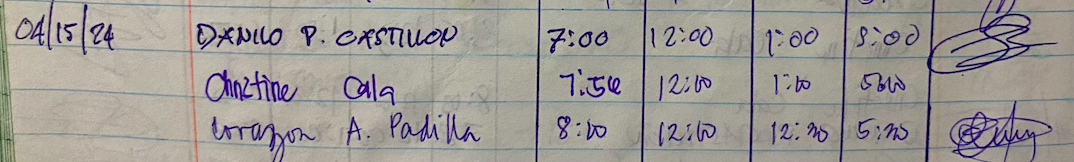 04/15/24 DANILO P. CASTILLON 7:00 12:00 1:00 5:00
Christine Cala 7:56 12:00 1:00 5:00
Corazon A. Padilla 8:00 12:00 12:30 5:30